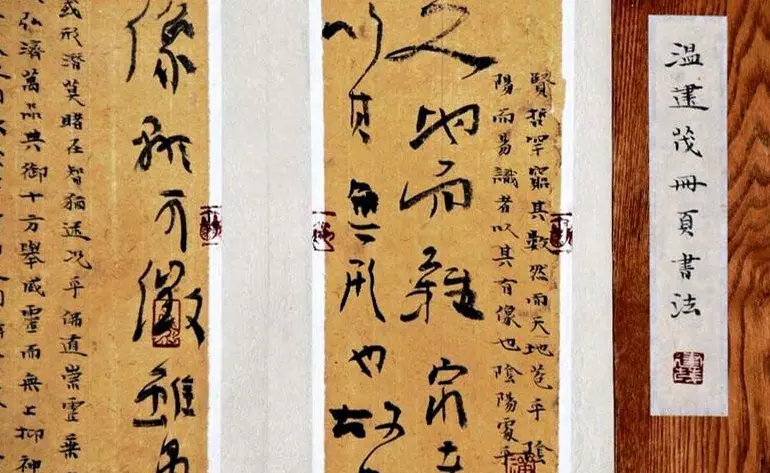 温建茂冊頁書法
賢哲罕窮其數然而天地苞乎陰
陽而易識者以其有像也陰陽處乎
天地而難窮
以其無形也故
像顯可徵雖愚
惑形潛莫睹在智猶迷況乎佛道崇虛乘
弘濟萬品典御十方舉威靈而無上抑神